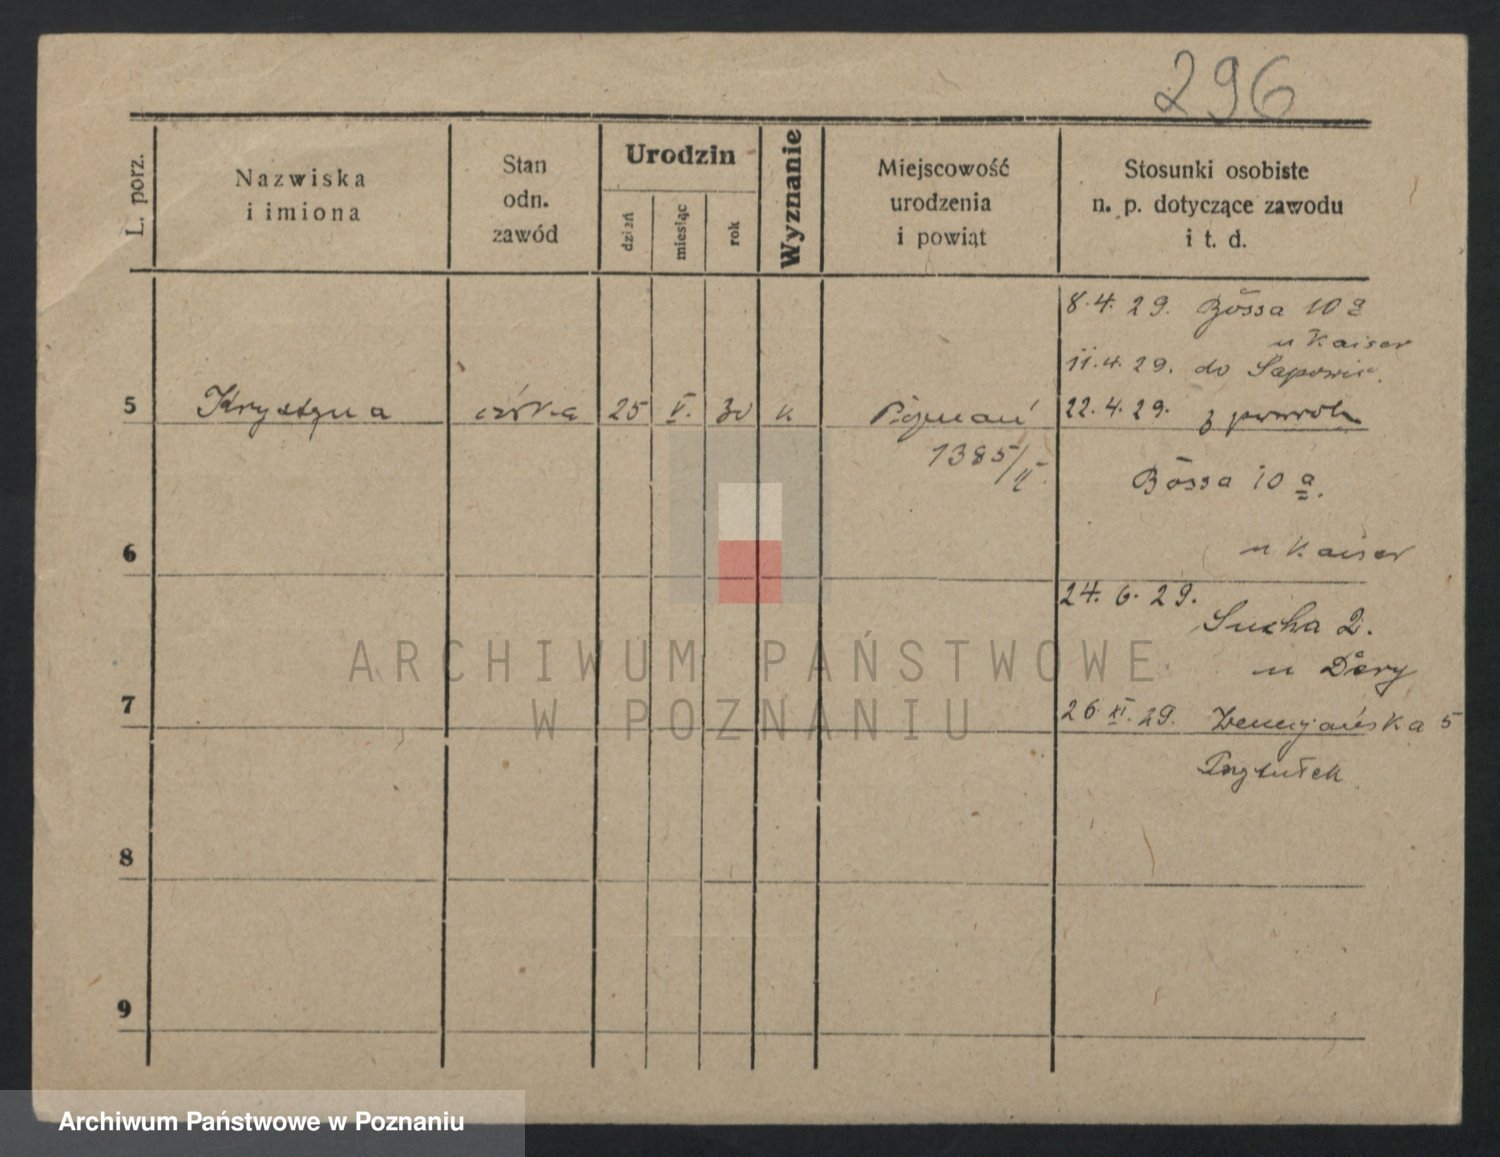 296
L. porz.
Nazwiska
i imiona
Stan
odn.
zawód
Urodzin
dzień
miesiąc
rok
Wyznanie
Miejscowość
urodzenia
i powiąt
Stosunki osobiste
n. p. dotyczące zawodu
i t. d.
8.4.29. Bössa 10 a
u Kaiser
11.4.29. do
5 Krystyna córka 25 V. 30 k Poznań 22.4.29. z powrotu
1385/II.
Bössa 10 a.
6
u Kaiser
24. 6. 29.
Sucha 2.
u
ARCHIWUM PAŃSTWOWE
W POZNANIU
7
26. XI. 29. 5
Przytułek
8
9
Archiwum Państwowe w Poznaniu